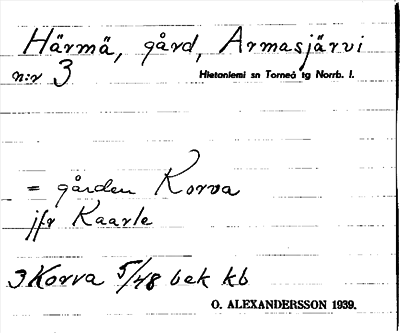 Härmä, gård, Armasjärvi
n:r 3 Hietaniemi sn Torneå tg Norrb. l.
= gården Korva
jfr Kaarle
3 Korva 5/48 bek kb
O. ALEXANDERSSON 1939.